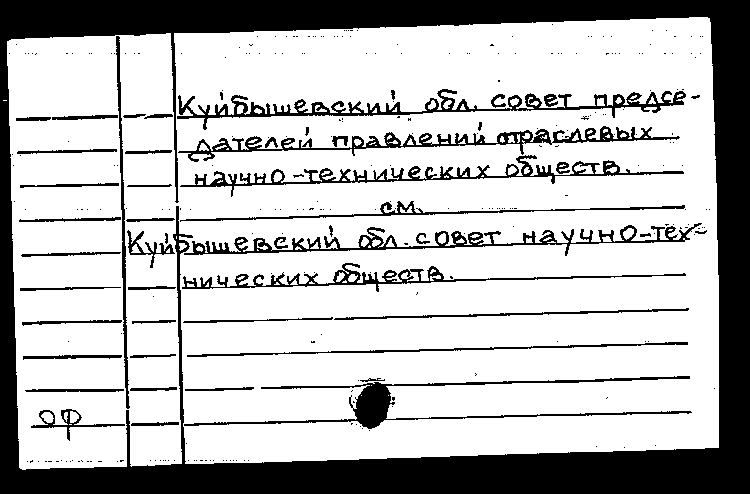 Куйбышевский обл. совет предсе-
дателей правлений отраслевых
научно-технических обществ.
см.
Куйбышевский обл. совет научно-тех-
нических обществ.
ОФ